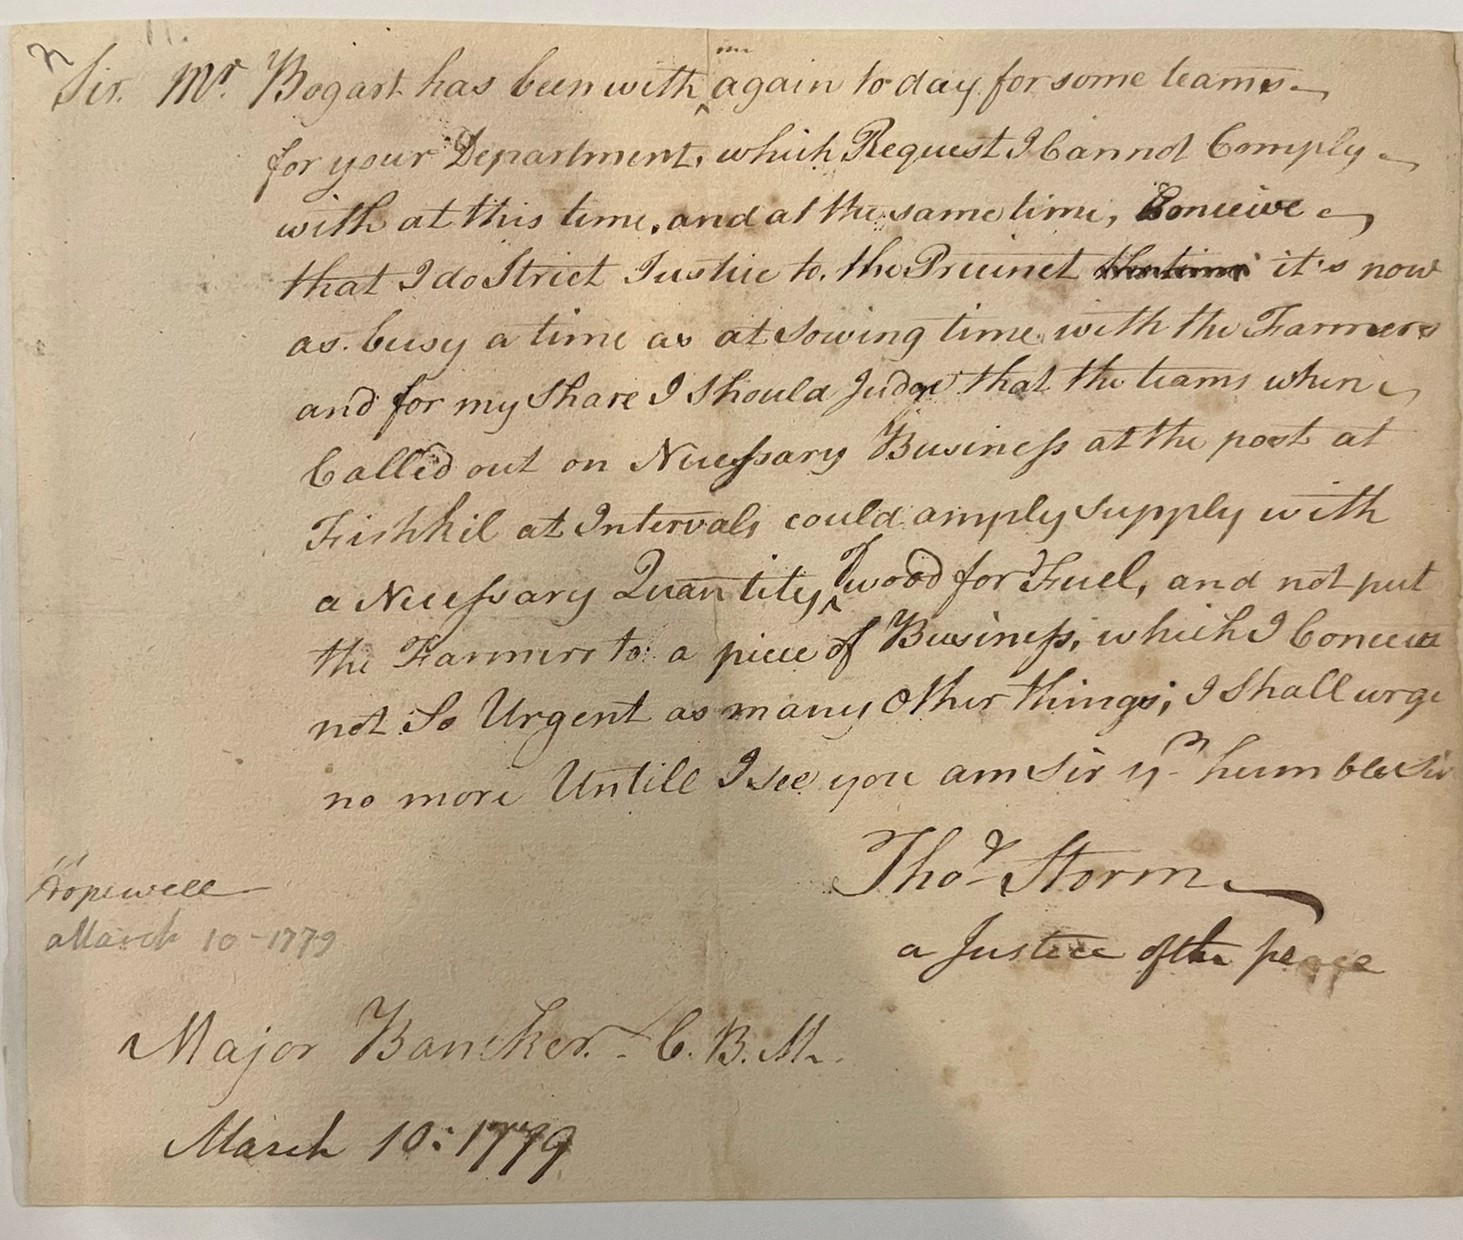 Sir. Mr. Bogart has been with me again to day for some teams
for your Department, which Request I Cannot Comply
with at this time, and at the same time, Conceive
that I do Strict Justice to the Precinct it's now
as busy a time as at Sowing time with the Farmers
and for my Share I Should Judge that the teams when
Called out on Necessary Business at the post at
Fishkil at Intervals could amply Supply with
a Necessary Quantity of wood for Fuel, and not put
the Farmers to a piece of Business, which I Conceive
not So Urgent as many Other things; I Shall urge
no more Untill I see you am Sir yr humble Sir
Thos Storm
a Justice of the peace
Hopewell
March 10 - 1779
Major Bancker. - C. B. M.
March 10: 1779